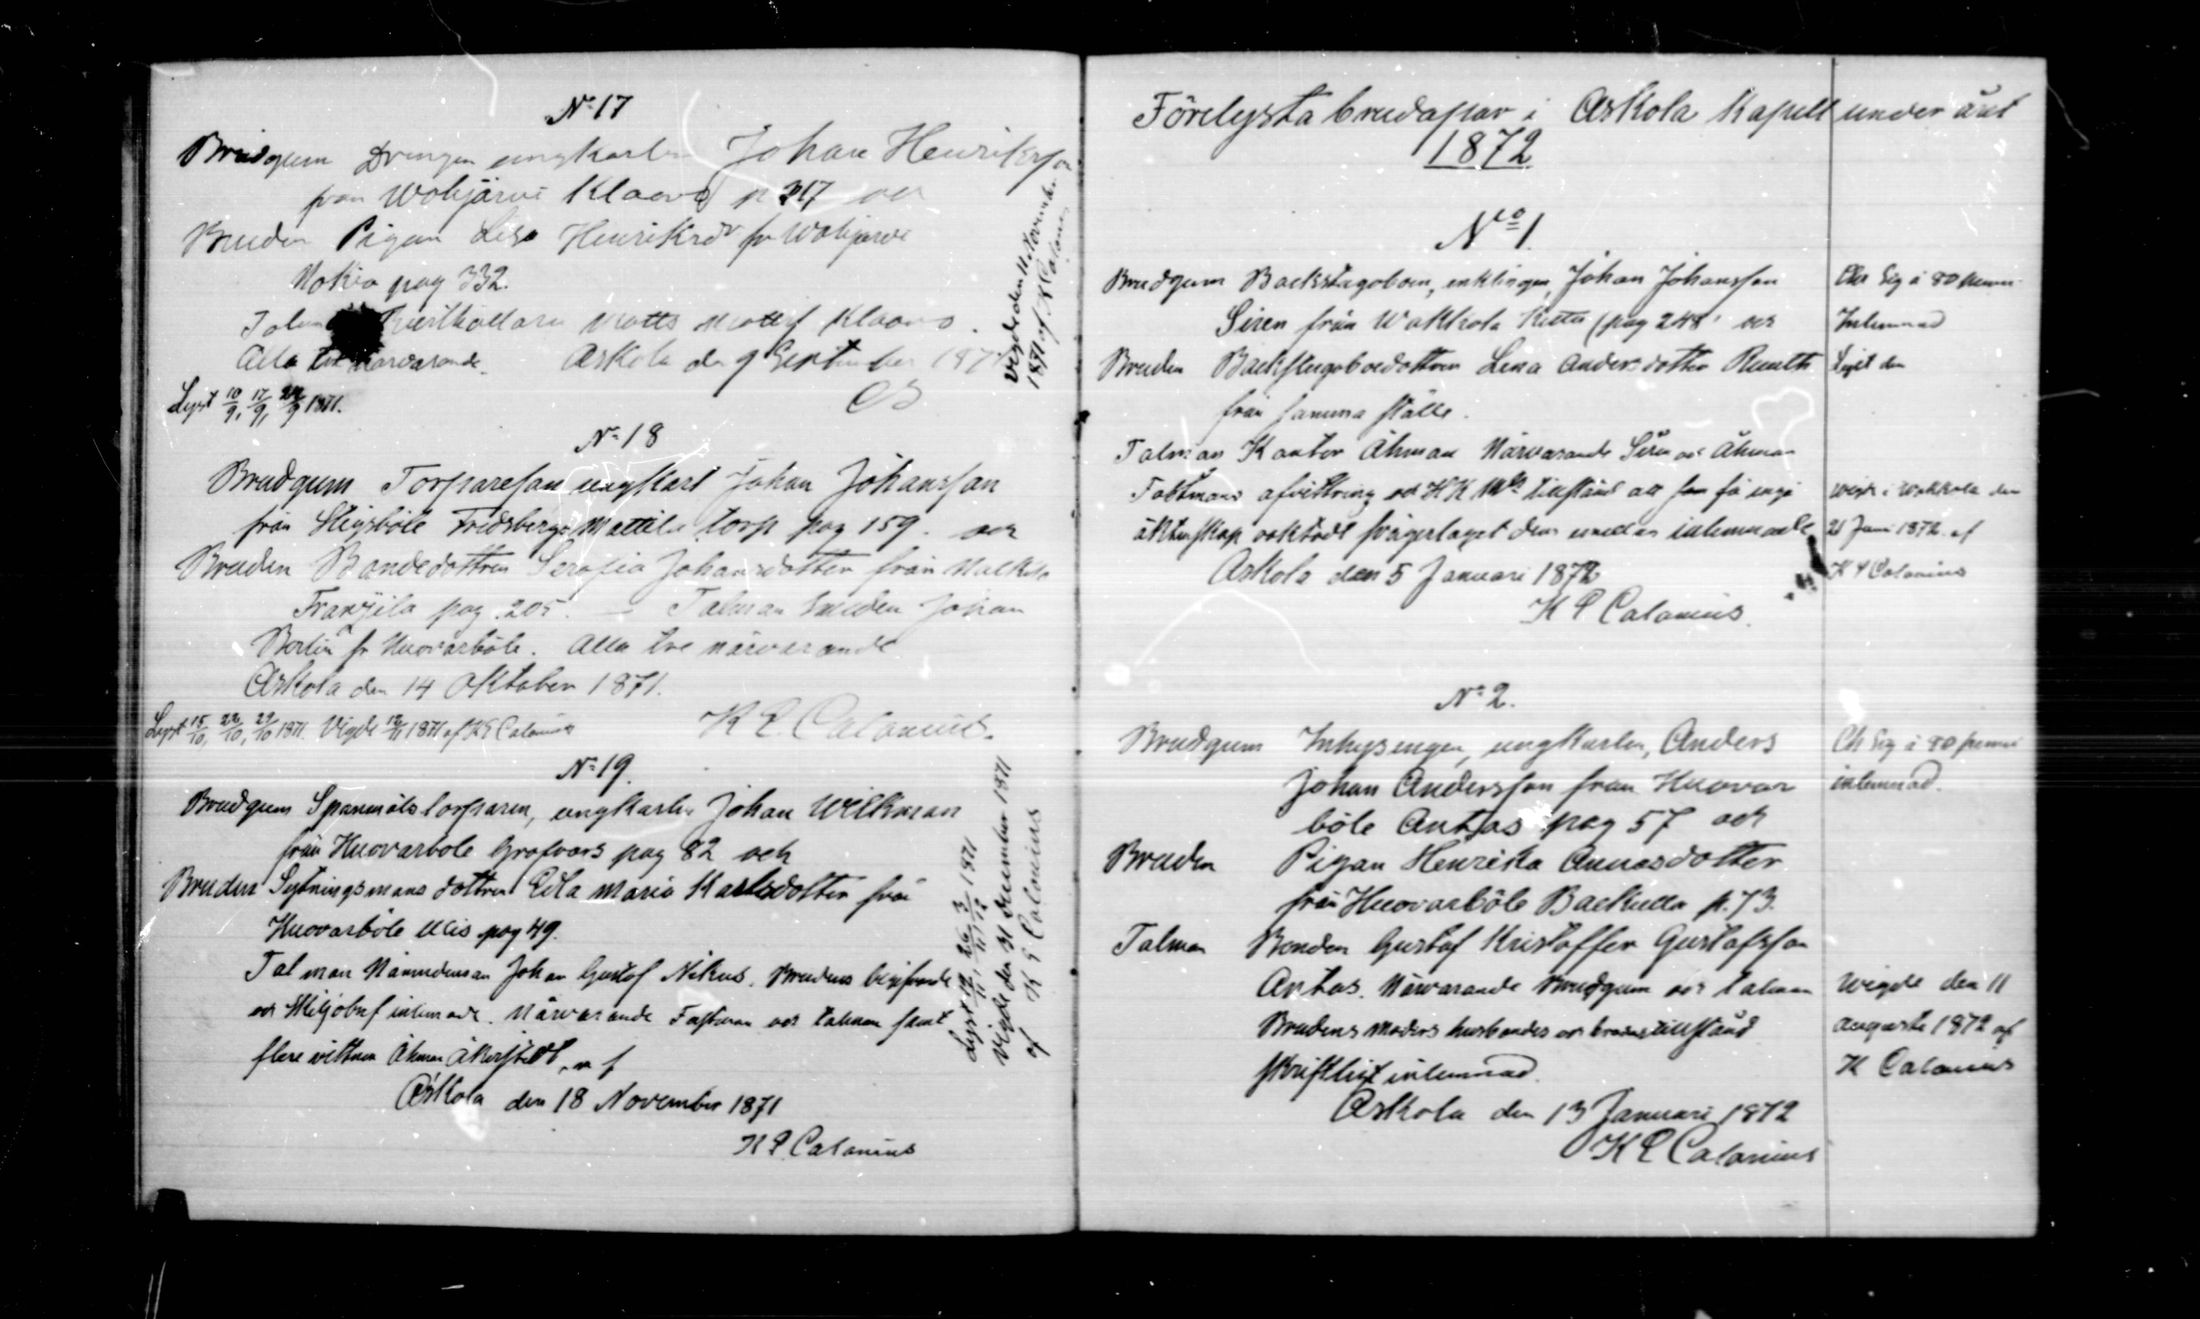 N:17
Brudgum Drengen ungkarlen Johan Henriksson
från Wahijärvi Klaavo p 317 och
Bruden Pigan Lisa Henriksdr fr Wahijärvi
Nokia pag 332.
Talman Matts Mattsf Klaavo.
Alla tre närvarande. Askola den 9 September 1871
Lyst 10/9, 17/9, 24/9 1871.
Vigde den 11 November
1871 af K Calonius
N:18
Brudgum Torparesonen ungkarl Johan Johansson
från Stigsböle Fridsberg Mattila torp pag 159. och
Bruden Bondedottren Serafia Johansdotter från
Franjila pag. 205. – Talman Smeden Johan
Berlin fr Huovarböle. Alla tre närvarande
Askola den 14 Oktober 1871.
Lyst 15/10, 22/10, 29/10 1871. Vigde 12/11 1871 af K E Calonius
K E Calonius.
N:19.
Brudgum Spanmåls torparen, ungkarlen Johan Wilkman
från Huovarböle Grofvars pag 82 och
Bruden Sytningsmans dottren Eda Maria Karlsdotter från
Huovarböle Ulis pag 49.
Talman Nämndeman Johan Gustaf Nikus. Brudens
och Skiljobref inlemnade. Närvarande Fästman och talman samt
flere vittnen Åhman Åkerstedt m f
Askola den 18 November 1871
K E Calonius
Lyst 19/11, 26/11, 3/12 1871
Vigde den 31 December 1871
af K E Calonius
Förelysta brudapar i Askola Kapell under året
1872
No 1.
Brudgum Backstugoboen, enklingen, Johan Johansson
Siren från Wakkola Ketta (pag 248) och
Bruden Backstugoboedottren Lena Andersdotter
från samma ställe.
Talman Kantor Åhman Närvarande Siren och Åhman
Fästmans afvittring och tillstånd att få ingå
äktenskap oaktadt svågerlaget den inlemnade
Askola den 5 Januari 1872
K E Calonius.
Sig à 80 penni
Inlemnad
Lyst den
Wigde i Wakkola den
21 Juni 1872 af
K E Calonius
N:2.
Brudgum Inhysingen, ungkarlen, Anders
Johan Andersson från Huovar
böle Antas pag 57 och
Bruden Pigan Henrika Annasdotter
från Huovarböle Backulla p. 73.
Talman Bonden Gustaf Kristoffer Gustafsson
Antas. Närvarande Brudgum och talman
Brudens moders husbondes och tillstånd
skriftligt inlemnad.
Askola den 13 Januari 1872
K E Calonius
Ch Sig à 80 penni
inlemnad.
Wigde den 11
Augusti 1872 af
K Calonius